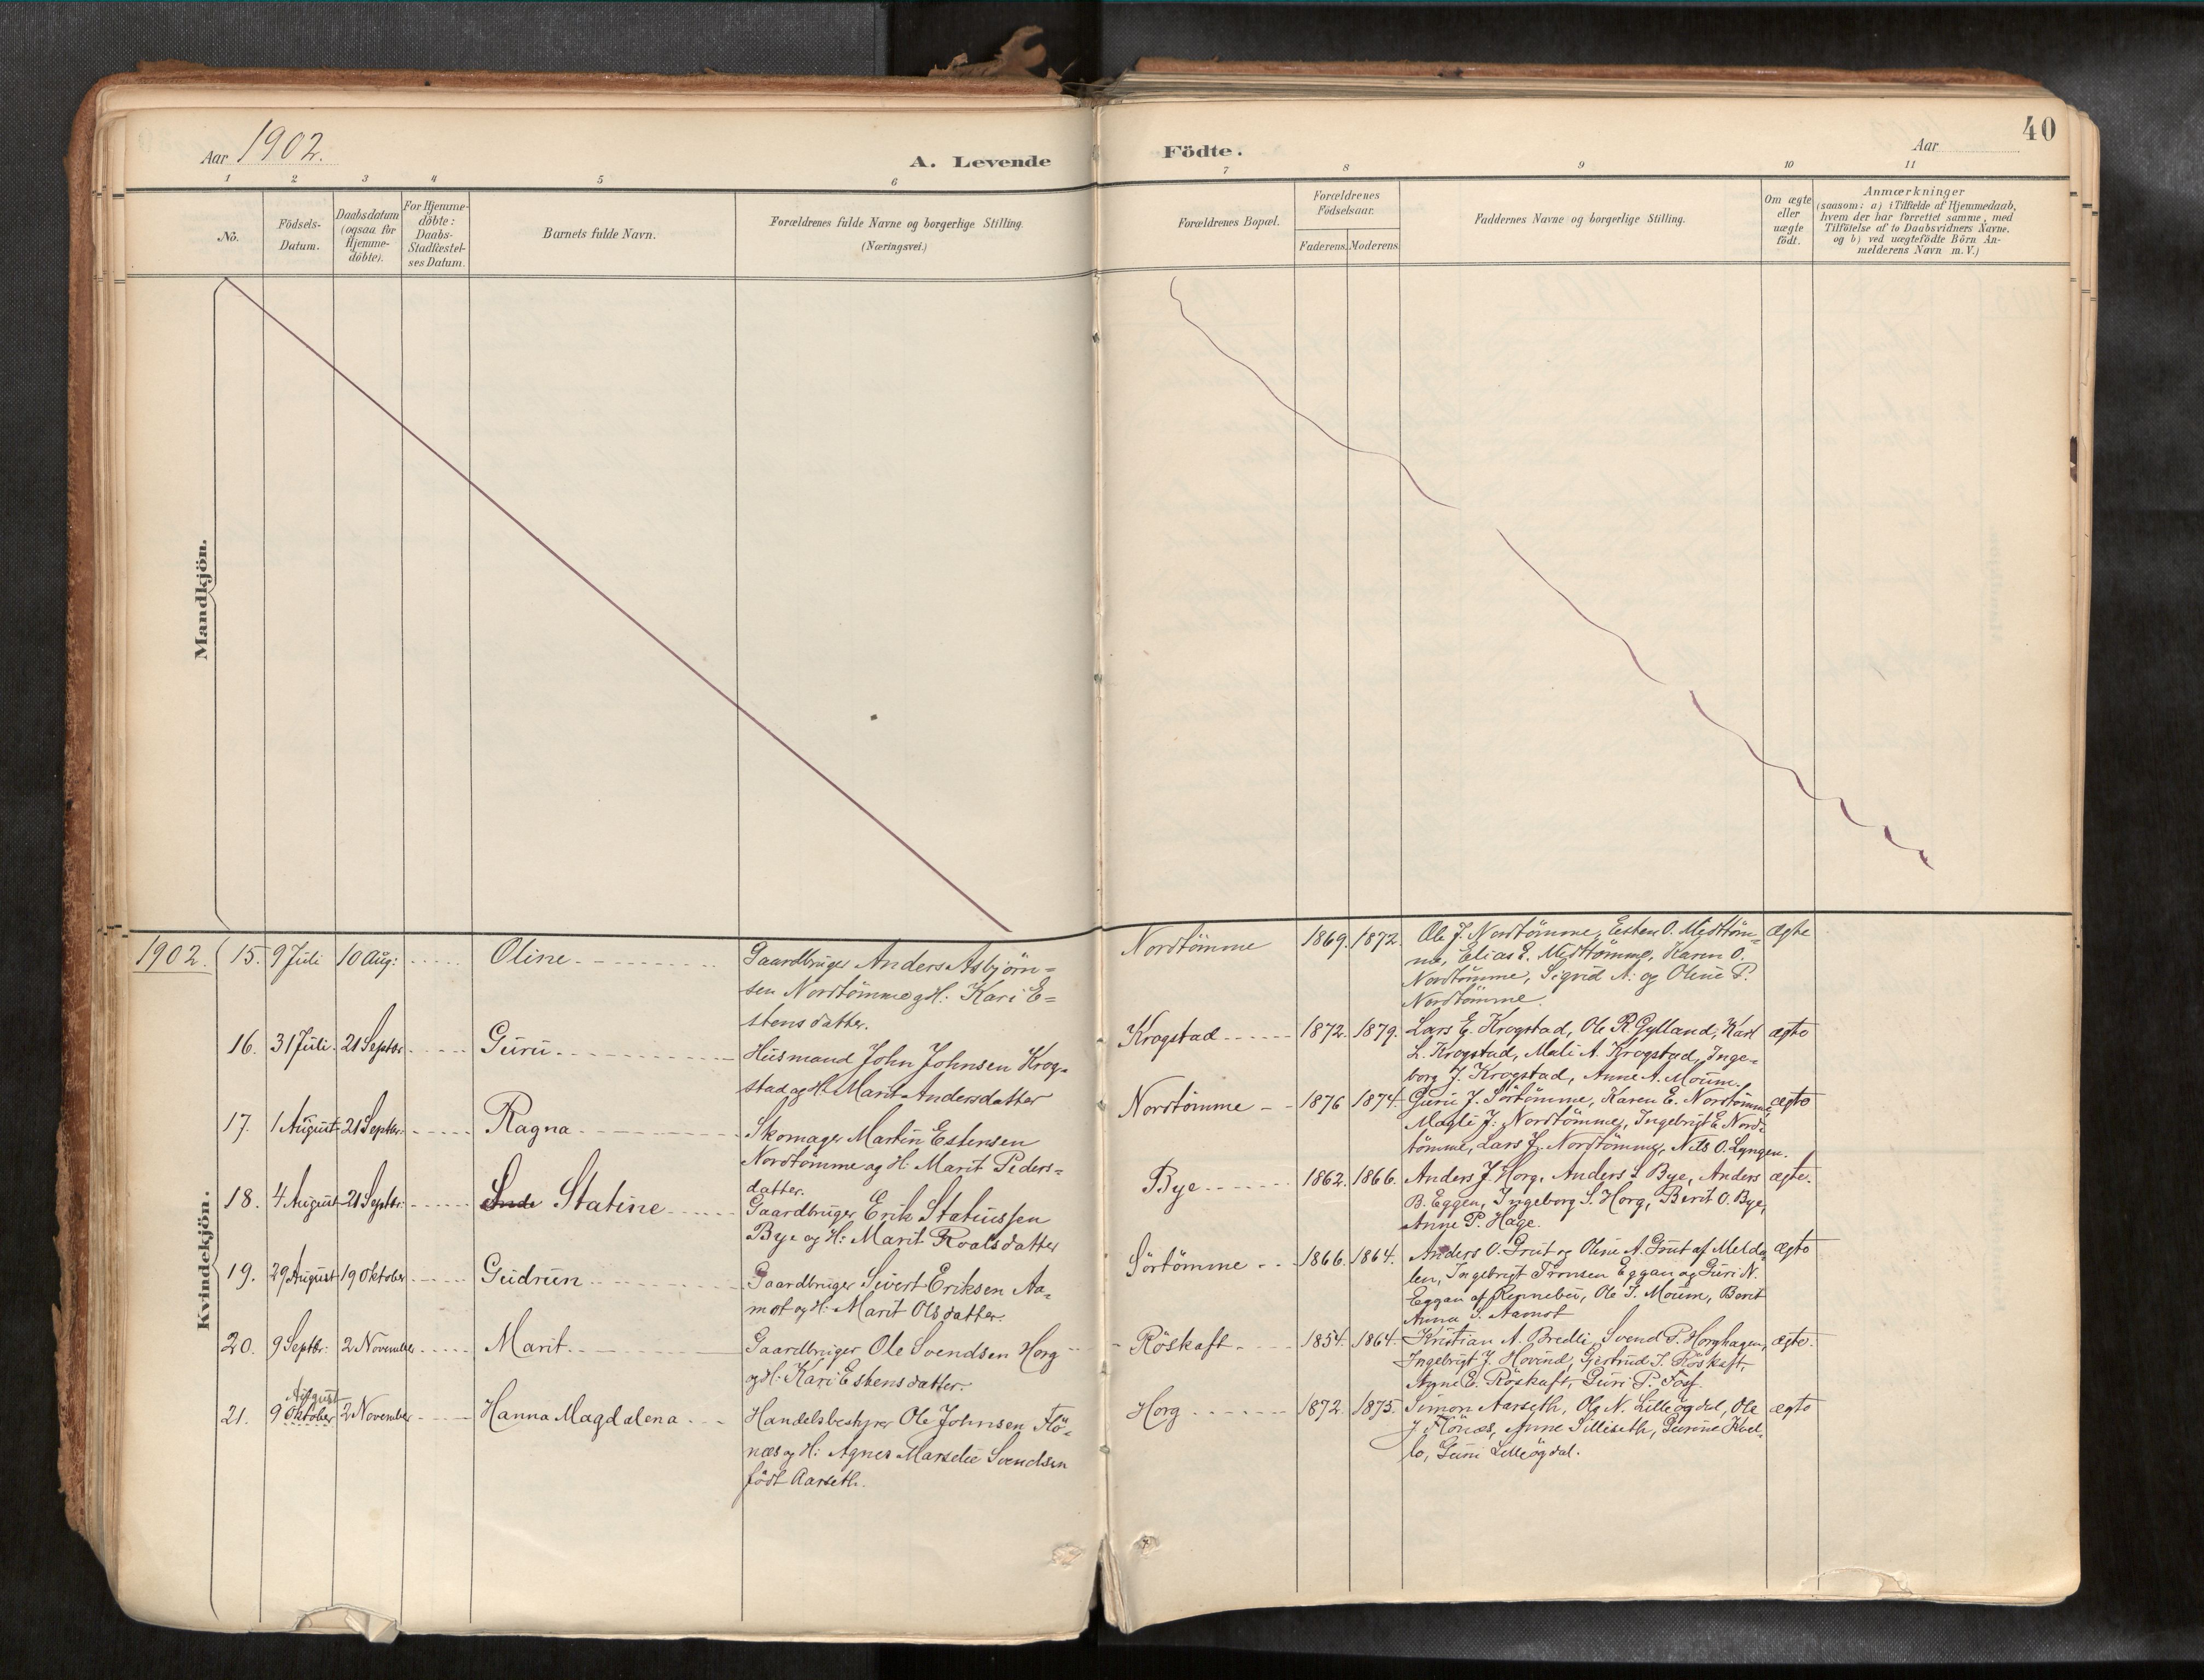 Aar 1902.
A. Levende
Födte.
Aar
40
1 2 3 4 5 6 7 8 9 10 11
No.
Födsels-
Datum.
Daabsdatum
(ogsaa for
Hjemme-
döbte).
For Hjemme-
döbte:
Daabs-
Stadfæstel-
ses Datum.
Barnets fulde Navn.
Forældrenes fulde Navne og borgerlige Stilling.
(Næringsvei.)
Forældrenes Bopæl.
Forældrenes
Födselsaar.
Faderens. Moderens.
Faddernes Navne og borgerlige Stilling.
Om ægte
eller
uægte
födt.
Anmærkninger
(saasom: a) i Tilfælde af Hjemmedaab,
hvem der har forrettet samme, med
Tilföielse af to Daabsvidners Navne.
og b) ved uægtefödte Börn An-
melderens Navn m.V.)
Mandkjön.
Kvindekjön.
1902. 15. 9 Juli 10 Aug: Oline
Gaardbruger Anders Asbjörn=
sen Nordtömme og H: Kari E=
stensdatter.
Nordtömme 1869. 1872.
Ole J. Nordtömme, Esten O. Midttöm=
me, Elias E. Midttömme, Karen O.
Nordtömme, Sigrid A. og Oline P.
Nordtömme.
ægte
16. 31 Juli. 21 Septbr. Guru
Husmand John Johnsen Krog=
stad og H: Marit Andersdatter
Krogstad 1872. 1879.
Lars E. Krogstad, Ole R. Gylland, Karl
L. Krogstad, Mali A. Krogstad, Inge=
borg J. Krogstad, Anne A. Moum.
ægte
17. 1 August 21 Septbr: Ragna
Skomager Martin Estensen
Nordtömme og H: Marit Peders=
datter.
Nordtömme 1876 1874.
Guru J. Sörtömme, Karen E. Nordtömme,
Magli J. Nordtömme, Ingebrigt E. Nord=
tömme, Lars J. Nordtömme, Nils O. Lyngen.
ægte
18. 4 August 21 Septbr: Statine
Gaardbruger Erik Statiussen
Bye og H: Marit Roalsdatter
Bye 1862. 1866.
Anders J. Horg, Anders S. Bye, Anders
B. Eggen, Ingeborg S. Horg, Berit O. Bye,
Anne P. Hage.
ægte.
19. 29 August 19 Oktober Gudrun
Gaardbruger Sivert Eriksen Aa=
mot og H: Marit Olsdatter.
Sörtömme 1866. 1864.
Anders O. Grut og Oline A. Grut af Melda=
len, Ingebrigt Tronsen Eggan og Guri N.
Eggan af Rennebu, Ole J. Moum, Berit
Anna S. Aamot
ægte
20. 9 Septbr: 2 November Marit
Gaardbruger Ole Svendsen Horg
og H: Kari Estensdatter.
Röskaft 1854. 1864.
Kristian A. Bredli, Svend P. Horghagen,
Ingebrigt J. Hovind, Gjertrud J. Röskaft,
Agne E. Röskaft, Guri P. Foss.
ægte.
August
21. 9 Oktober 2 November Hanna Magdalena
Handelsbestyrer Ole Johnsen Flö=
næs og H: Agnes Marselie Svendsen
födt Aarseth.
Horg 1872. 1875.
Simon Aarseth, Ole N. Lilleögdal, Ole
J. Flönæs, Anne Silliseth, Gurine Kvel=
lo, Guri Lilleögdal.
ægte